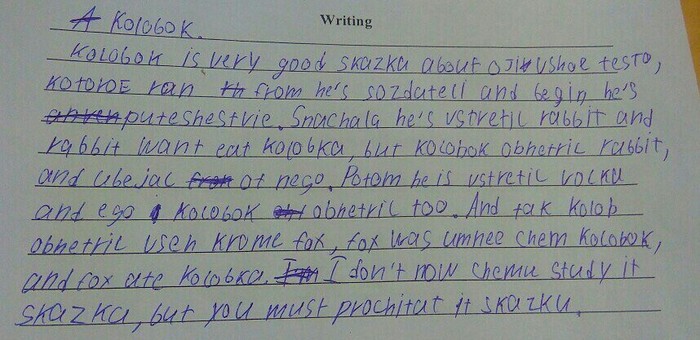 Writing
A Kolobok.
Kolobok is very good skazka about ojivshoe testo,
kotoroe ran th from he's sozdateli and begin he's
puteshestvie. Snachala he's vstretil rabbit and
rabbit want eat Kolobka, but Kolobok obhetril rabbit,
and ubejal from ot nego. Potom he is vstretil volka
and ego Kolobok obhetril too. And tak Kolob
obhetril vseh krome fox, fox was umnee chem Kolobok,
and fox ate Kolobka. I'm I don't now chemu study it
skazka, but you must prochitat it skazku.